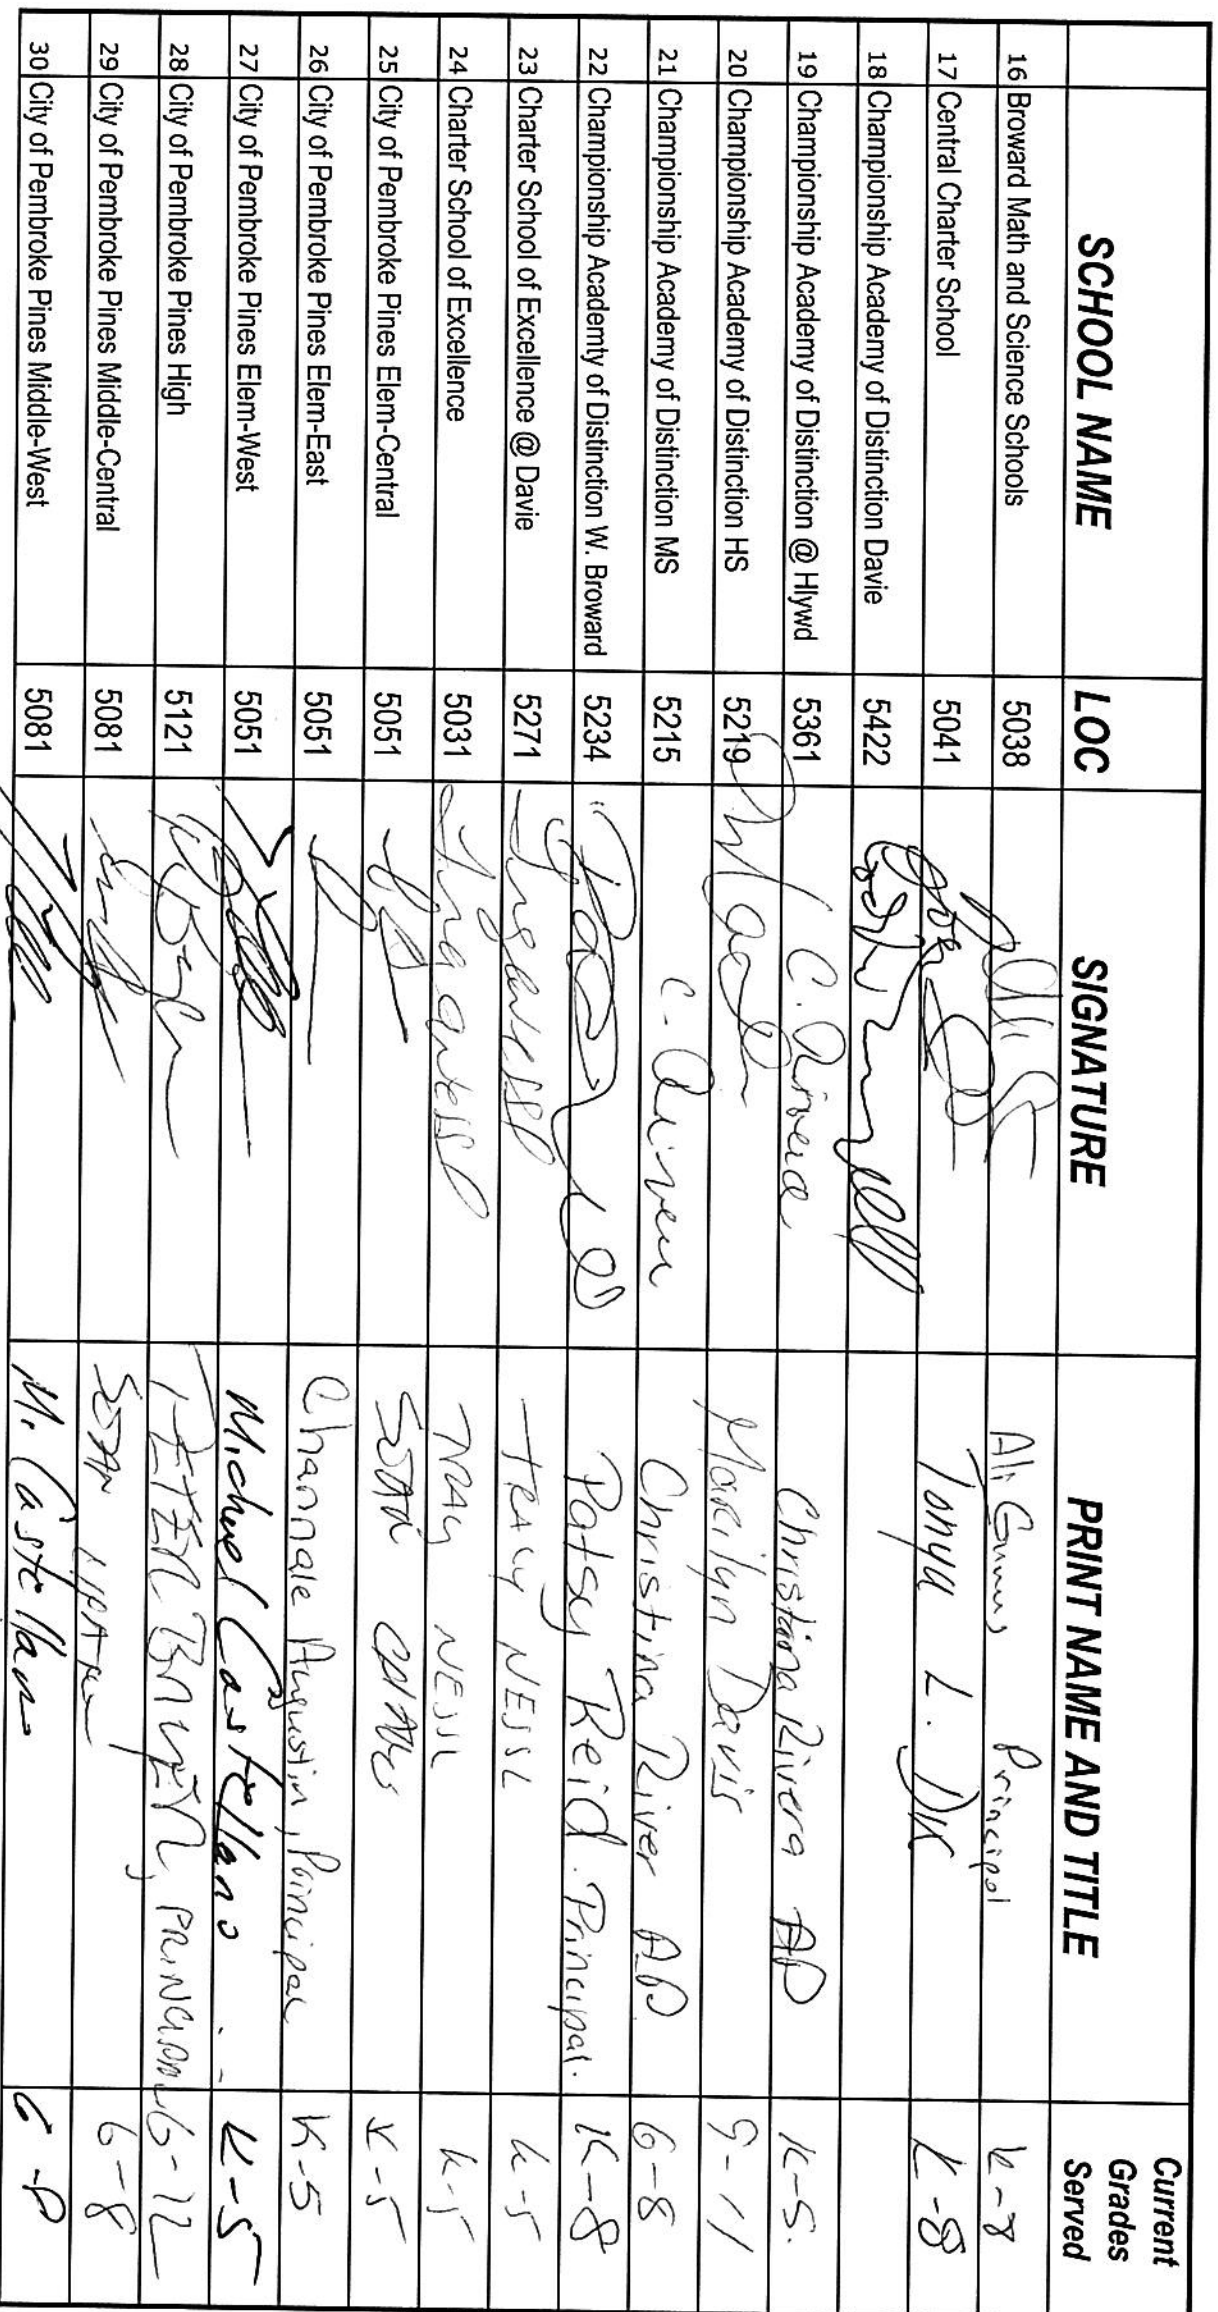 SCHOOL NAME LOC SIGNATURE PRINT NAME AND TITLE Current Grades Served
16 Broward Math and Science Schools 5038 Ali Gumus Principal K-8
17 Central Charter School 5041 Tonya L. Dix K-8
18 Championship Academy of Distinction Davie 5422
19 Championship Academy of Distinction @ Hlywd 5361 C. Rivera Christina Rivera AP K-5.
20 Championship Academy of Distinction HS 5219 Marilyn Davis 9-11
21 Championship Academy of Distinction MS 5215 C. River Christina River AP 6-8
22 Championship Academty of Distinction W. Broward 5234 Patsy Reid. Principal. K-8
23 Charter School of Excellence @ Davie 5271 TRACY NESSL K-5
24 Charter School of Excellence 5031 NESSL K-5
25 City of Pembroke Pines Elem-Central 5051 K-5
26 City of Pembroke Pines Elem-East 5051 Channale Augustin, Principal K-5
27 City of Pembroke Pines Elem-West 5051 Michael Castellano K-5
28 City of Pembroke Pines High 5121 PETER BAYER, PRINCIPAL 6-12
29 City of Pembroke Pines Middle-Central 5081 6-8
30 City of Pembroke Pines Middle-West 5081 M. Castellano 6-8